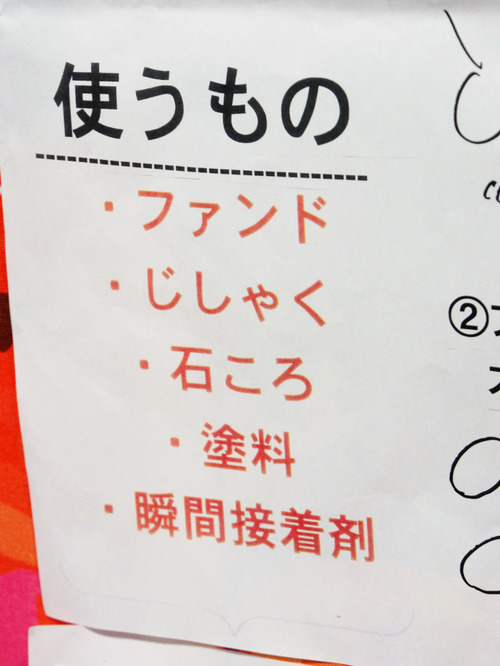 使うもの
・ファンド
・じしゃく
・石ころ
・塗料
・瞬間接着剤
②